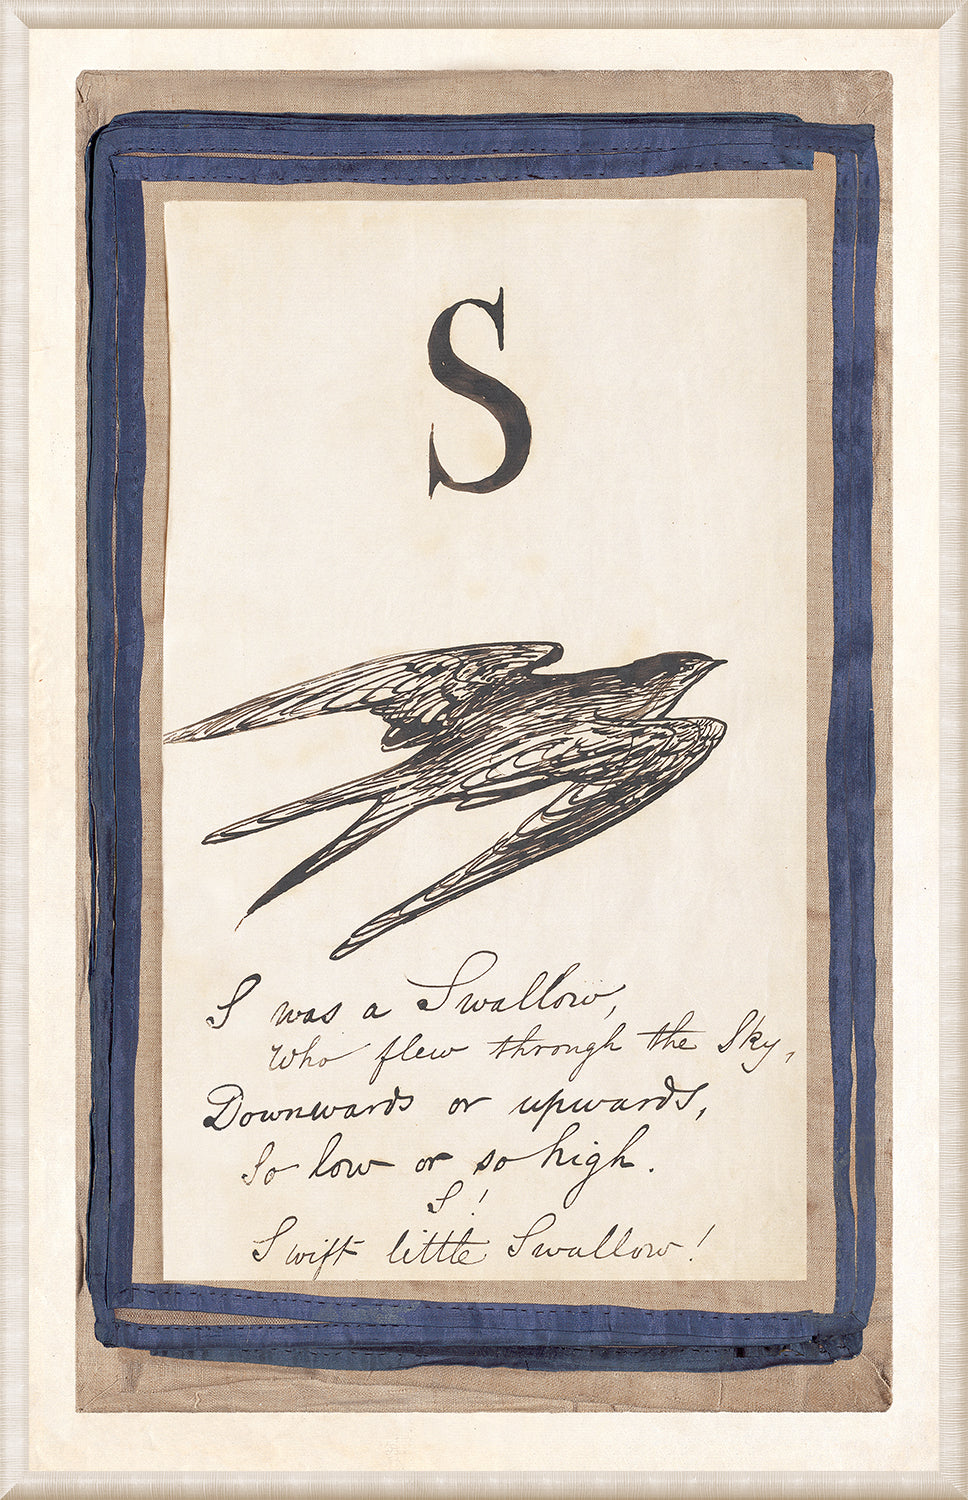 S
S was a Swallow,
Who flew through the Sky,
Downwards or upwards,
So low or so high.
S!
Swift little Swallow!